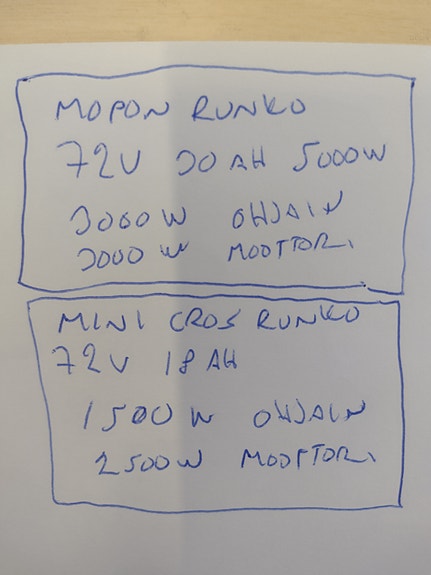 MOPON RUNKO
72V 30 AH 5000W
3000W OHJAIN
3000W MOOTTORI
MINI CROS RUNKO
72V 18 AH
1500W OHJAIN
2500W MOOTTORI